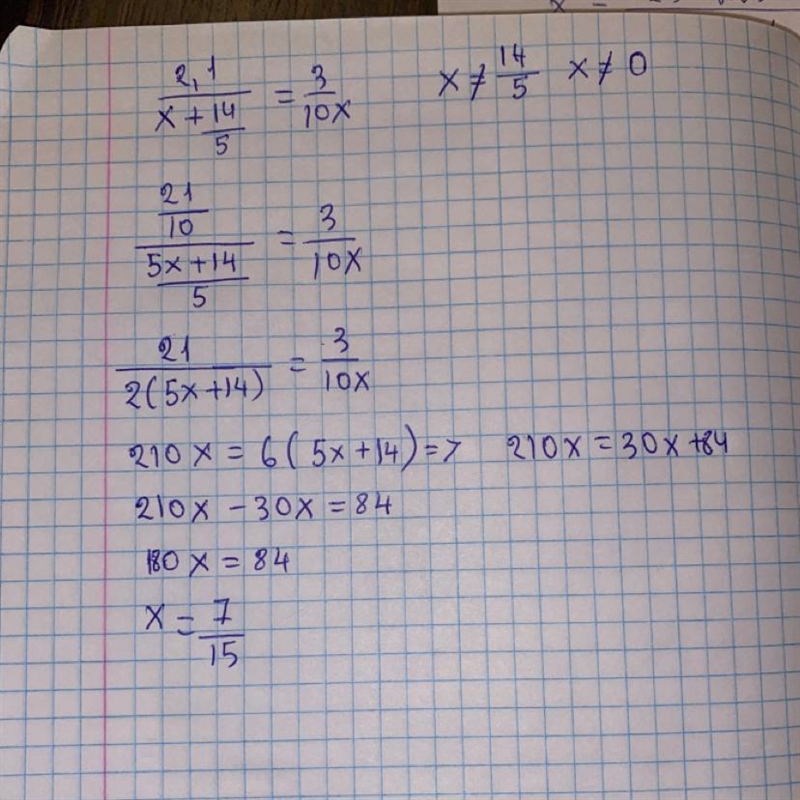 2,1 / (x + 14/5) = 3/10x   x ≠ 14/5   x ≠ 0
(21/10) / ((5x + 14)/5) = 3/10x
21 / 2(5x + 14) = 3/10x
210x = 6(5x + 14) => 210x = 30x + 84
210x - 30x = 84
180x = 84
x = 7/15